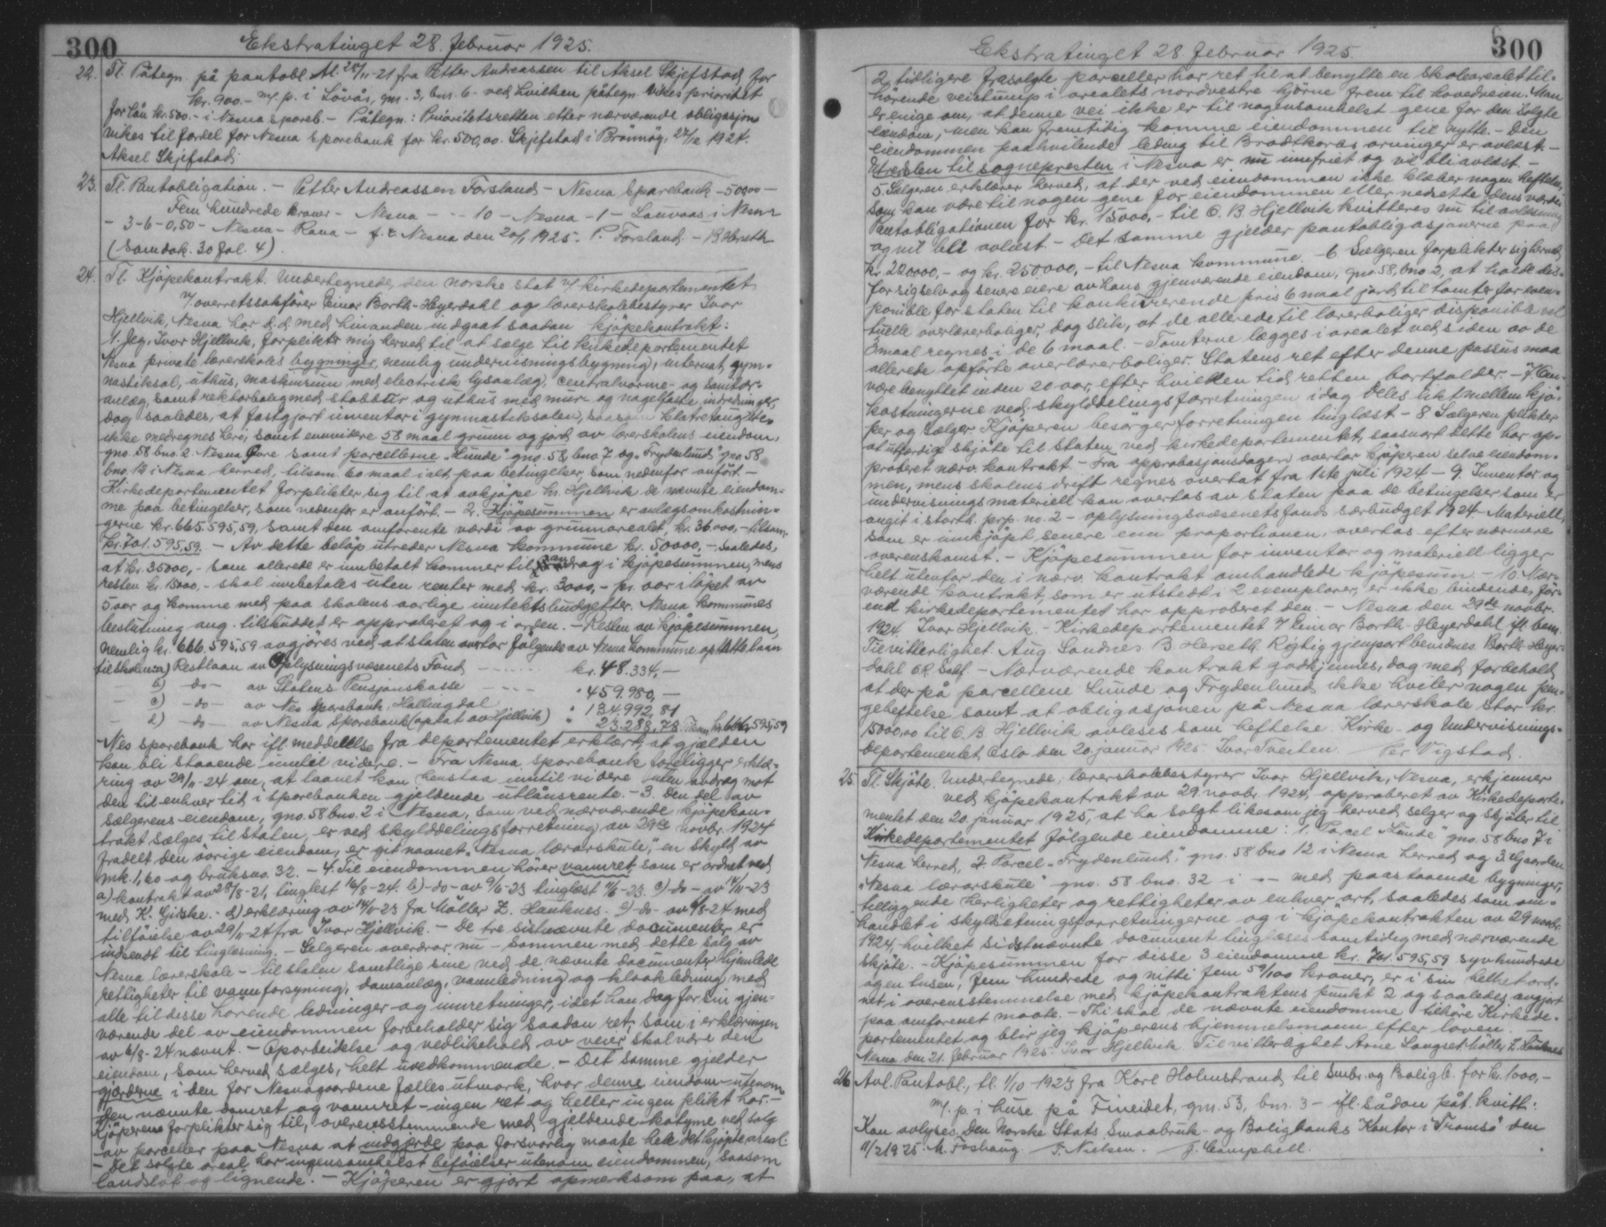 300
Ekstratinget 28. februar 1925.
22. Tl. Påtegn. på pantobl. tl. 28/11-21 fra Petter Andreassen til Aksel Skjefstad for
kr. 900.- m/ p. i Lövås, gnr. 3, bnr. 6 - ved hvilken påtegn. vikes prioritet
for lån kr. 500.- i Nesna Spareb. - Påtegn: Prioritetsretten efter nærværende obligasjon
vikes til fordel for Nesna Sparebank for kr. 500,00. Skjefstad i Brönnöy, 27/12 1924.
Aksel Skjefstad
23. Tl. Pantobligation. - Petter Andreassen Forsland - Nesna Sparebank - 500,00 -
Fem hundrede kroner - Nesna - - 10 - Nesna - 1 - Lauvaas i Nesna
- 3-6-0,50 - Nesna - Rana - f. t. Nesna den 20/1 1925. P. Forsland -
(Samdok. 30 fol. 4).
24. Tl. Kjöpekontrakt. Undertegnede, den norske stat v/ kirkedepartementet
v/ overretssakförer Einar Borth-Heyerdahl og lærerskolebestyrer Ivar
Hjellvik, Nesna har d.d. med hinanden indgaat saadan kjöpekontrakt:
1. Jeg, Ivar Hjellvik, forplikter mig herved til at sælge til kirkedepartementet
Nesna private lærerskoles bygninger, nemlig undervisningsbygning, internat, gym-
nastiksal, uthus, maskinrum med electrisk lysanlæg, centralvarme- og sanitær-
anlæg, samt rektorbolig med stabbur og uthus med mur- og nagelfaste indredninger,
dog saaledes, at fastgjort inventar i gymnastiksalen, saasom klatretaug etc.
ikke medregnes heri, samt ennvidere 58 maal grunn og jord av lærerskolens eiendom,
gno. 58 bno. 2 Nesna Övre samt parcellerne "Lunde" gno. 58, bno. 7 og "Frydenlund" gno. 58
bno. 12 i Nesna herred, tilsam. 60 maal i alt, paa betingelser, som nedenfor anfört. -
Kirkedepartementet forplikter sig til at avkjöpe hr. Hjellvik de nævnte eiendom-
me paa betingelser, som nedenfor er anfört. - 2. Kjöpesummen er anlægsomkostnin-
gerne kr. 665.595,59, samt den anförente værdi av grunnarealet, kr. 36000,- tilsam.
kr. 701.595,59. - Av dette belöp utreder Nesna kommune kr. 50000,- saaledes,
at kr. 35000,- som allerede er innbetalt kommer til fradrag i kjöpesummen, mens
resten kr. 15000,- skal innbetales uten renter med kr. 3000,- pr. aar i löpet av
5 aar og komme med paa skolens aarlige inntektsbudgetter. Nesna kommunes
beslutning ang. tilskuddet er approbert og i orden. - Resten av kjöpesummen,
nemlig kr. 666.595,59 avgjöres ved at staten overtar fölgende av Nesna kommune optatte laan
til skolen: a) Restlaan av Oplysningsvæsenets Fond - - - kr. 48.334,-
b) - do - av Statens Pensjonskasse - - - " 459.980,-
c) - do - av Nes Sparebank, Hallingdal " 134.992,81
d) - do - av Nesna Sparebank (optat av Hjellvik) " 23.288,78 Tilsam. kr. 666.595,59
Nes sparebank har ifl. meddelelse fra departementet erklært, at gjælden
kan bli staaende inntil videre. - Fra Nesna Sparebank foreligger erklæ-
ring av 29/11-24 om, at laanet kan henstaa inntil videre uten avdrag mot
den til enhver tid i sparebanken gjældende utlånsrente. - 3. Den del av
sælgerens eiendom, gno. 58 bno. 2 i Nesna, som ved nærværende kjöpekon-
trakt sælges til staten, er ved skylddelingsforretning av 29de novbr. 1924
fradelt den övrige eiendom, er git navnet "Nesna lærerskule", en skyld av
mk. 1,60 og bruksno. 32. - 4. Til eiendommen hörer vannret som er ordnet ved
a) kontrakt av 28/8-21, tinglest 16/8-24. b) - do - av 9/6-23 tinglest 11/6-23. c) - do - av 14/11-23
med K. Giæske. - d) erklæring av 14/11-23 fra Möller Z. Hauknes. e) - do - av 6/8-24 med
tilföielse av 29/11-24 fra Ivar Hjellvik. - De tre sistnævnte documenter er
indsendt til tinglæsning. - Selgeren overdrar nu - sammen med dette salg av
Nesna lærerskole - til staten samtlige sine ved de nævnte documenter hjemlede
rettigheter til vannforsyning, damanlæg, vannledning og kloakledning med
alle til disse hörende ledninger og innretninger, idet han dog for sin gjen-
værende del av eiendommen forbeholder sig saadan ret, som i erklæringen
av 6/8-24 nævnt. - Oparbeidelse og vedlikehold av veier skal være den
eiendom, som herved sælges, helt uvedkommende. - Det samme gjelder
gjærderne i den for Nesnagaardene fælles utmark, hvor denne eiendom utenom
den nævnte damret og vannret - ingen ret og heller ingen plikt har. -
Kjöperen forplikter sig til, overensstemmende med gjeldende kotyme ved salg
av parceller paa Nesna at nedgjærde paa forsvarlig maate hele det kjöpte areal.
- Det solgte areal har ingensomhelst beföielser utenom eiendommen, saasom
landslot og lignende. - Kjöperen er gjort opmerksom paa, at
300
Ekstratinget 28 februar 1925.
2 tidligere frasolgte parceller har ret til at benytte en skolearealet til-
hörende veistump i arealets nordvestre hjörne frem til hovedveien. Man
er enige om, at denne vei ikke er til nogensomhelst gene for den solgte
eiendom, men kan fremtidig komme eiendommen til nytte. - Den
eiendommen paahvilende leding til Brodtkorbs arvinger er avlöst. -
Utredslen til sognepresten i Nesna er nu innfriet og vil bli avlöst. -
5. Selgeren erklærer herved, at der ved eiendommen ikke kleber nogen heftelser,
som kan være til nogen gene for eiendommen eller nedsette dens værdi.
Pantobligationen for kr. 15000,- til O. B. Hjellvik kvitteres nu til avlösning
og vil bli avlöst - Det samme gjelder pantobligasjonerne paa
kr. 220000,- og kr. 250000,- til Nesna kommune. - 6 Sælgeren forplikter sig herved,
for sig selv og senere eiere av hans gjenværende eiendom, gno. 58, bno. 2, at holde dis-
ponible for staten til konkurrerende pris 6 maal jord til tomter for even-
tuelle overlærerboliger, dog slik, at de allerede til lærerboliger disponible vel
3 maal regnes i de 6 maal. - Tomterne lægges i arealet ved siden av de
allerede opförte overlærerboliger. Statens ret efter denne passus maa
være benyttet inden 20 aar, efter hvilken tid retten bortfalder. - 7 Om-
kostningerne ved skylddelingsforretningen idag deles likt mellem kjö-
per og sælger. Kjöperen besörger forretningen tinglæst - 8 Sælgeren plikter
at utferdige skjöte til staten ved kirkedepartementet, saasnart dette har ap-
probert nærv. kontrakt - Fra approbasjonsdagen overtar kjöperen selve eiendom-
men, mens skolens drift regnes overtat fra 1ste juli 1924 - 9. Inventar og
undervisningsmateriell kan overtas av staten paa de betingelser som er
angit i storth. prp. no. 2 - oplysningsvæsenets fonds særbudget 1924. Materiell,
som er innkjöpt senere enn proportionen, overtas efter nærmere
overenskomst. - Kjöpesummen for inventar og materiell ligger
helt utenfor den i nærv. kontrakt omhandlede kjöpesum - 10. Nær-
værende kontrakt, som er utstedt i 2 exemplarer, er ikke bindende, för-
end kirkedepartementet har approbert den. - Nesna den 29de novbr.
1924. Ivar Hjellvik. - Kirkedepartementet v/ Einar Borth-Heyerdahl ifl. bem.
Til vitterlighet Aug Sandnes B Herseth. Rigtig gjenpart bevidnes Borth-Heyer-
dahl o.r. sakf. - Nærværende kontrakt godkjennes, dog med forbehold,
at der på parcellene Lunde og Frydenlund ikke hviler nogen pen-
geheftelse samt at obligasjonen på Nesna lærerskole stor kr.
15000,00 til O. B. Hjellvik avleses som heftelse. Kirke- og Undervisnings-
departementet, Oslo den 20 januar 1925. Ivar Tveiten. Per Vigstad.
25. Tl. Skjöte. Undertegnede, lærerskolebestyrer Ivar Hjellvik, Nesna, erkjenner
ved kjöpekontrakt av 29. novbr. 1924, approberet av Kirkedeparte-
mentet den 20 januar 1925, at ha solgt likesom jeg herved selger og skjöter til
Kirkedepartementet fölgende eiendomme: 1. Parcel "Lunde" gno. 58 bno 7 i
Nesna herred, 2 Parcel "Frydenlund", gno. 58 bno 12 i Nesna herred og 3. Gaarden
"Nesna lærarskule" gno. 58 bno. 32 i - - med paastaaende bygninger,
tilliggende herligheter og rettigheter av enhver art, saaledes som om-
handlet i skyldsetningsforretningerne og i kjöpekontrakten av 29 novbr.
1924, hvilket sidstnævnte document tinglæses samtidig med nærværende
skjöte. - Kjöpesummen for disse 3 eiendomme kr. 701.595,59 syvhundrede
ogen tusen, fem hundrede og nitti fem 59/100 kroner, er i sin helhet ord-
net i overensstemmelse med kjöpekontraktens punkt 2 og saaledes avgjort
paa omforenet maate. - Thi skal de nævnte eiendomme tilhöre Kirkede-
partementet og blir jeg kjöperens hjemmelsmann efter loven. -
Nesna den 21. februar 1925. Ivar Hjellvik. Til vitterlighet Arne Langset Möller Z. Hauknes
26 Avl. Pantobl., tl. 1/10-1923 fra Karl Holmstrand til Småbr. og Boligb. for kr. 1000,-
m/ p. i huse på Fineidet, gnr. 53, bnr. 3 - ifl. sådan påt. kvitt.:
Kan avlyses. Den Norske Stats Smaabruk- og Boligbanks Kontor i Tromsö den
11/2 1925. M. Foshaug. F. Nielsen. J. Campbell.